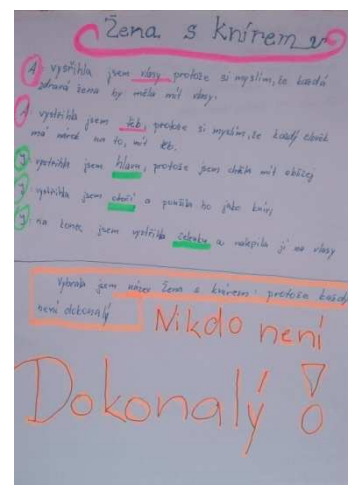 Žena s knírem
A vystřihla jsem vlasy protože si myslím, že každá
žena by měla mít vlasy.
A vystřihla jsem krb, protože si myslím, že každý člověk
má nárok na to, mít krb.
vystřihla jsem hlavu, protože jsem chtěla mít obličej
vystřihla jsem obočí a použila ho jako knír,
na konec jsem vystřihla čelenku a nalepila ji na vlasy
Vybrala jsem název Žena s knírem protože každý
není dokonalý
Nikdo není
Dokonalý!